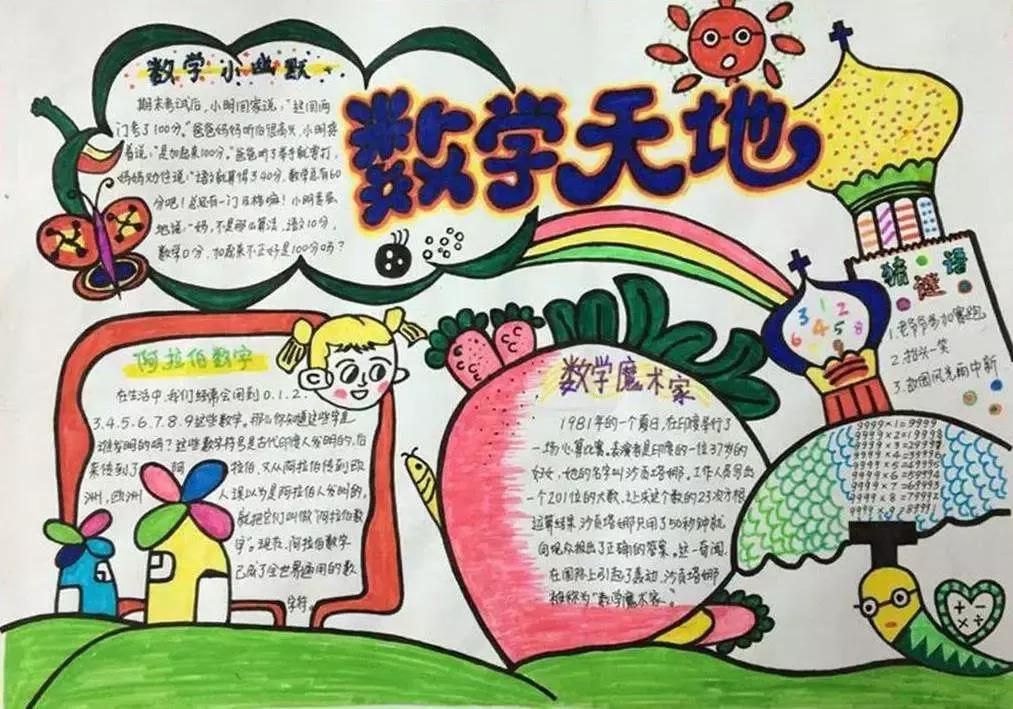 数学天地
数学小幽默
期末考试后,小明回家说:“这回两
门考了100分。”爸爸妈妈听后很高兴,小明接
着说:“是加起来100分。”爸爸听了举手就要打,
妈妈劝住说:“语文就算得了40分,数学总有60
分吧!总还有一门及格嘛!小明委屈
地说:“妈,不是那么算法,语文10分,
数学0分,加起来不正好是100分吗?
阿拉伯数字
在生活中,我们经常会用到0.1.2.
3.4.5.6.7.8.9这些数字。那么你知道这些字是
谁发明的吗?这些数字符号是古代印度人发明的,后
来传到了阿拉伯,又从阿拉伯传到欧
洲,欧洲人误以为是阿拉伯人发明的,
就把它们叫做“阿拉伯数
字”。现在,阿拉伯数字
已成了全世界通用的数
字符。
数学魔术家
1981年的一个夏日,在印度举行了
一场心算比赛,表演者是印度的一位37岁的
妇女,她的名字叫沙贡塔娜。工作人员写出
一个201位的大数,让求这个数的23次方根
运算结果,沙贡塔娜只用了50秒钟就
向观众报出了正确的答案。这一奇闻
在国际上引起了轰动,沙贡塔娜
被称为“数学魔术家”。
猜谜语
1.老爷爷参加赛跑
2.抬头一笑
3.故国风光雨中新
3 1 2
6 4 5 8
9999×1=9999
9999×2=19998
9999×3=29997
9999×4=39996
9999×5=49995
9999×6=59994
9999×7=69993
9999×8=79992
+ − × ÷